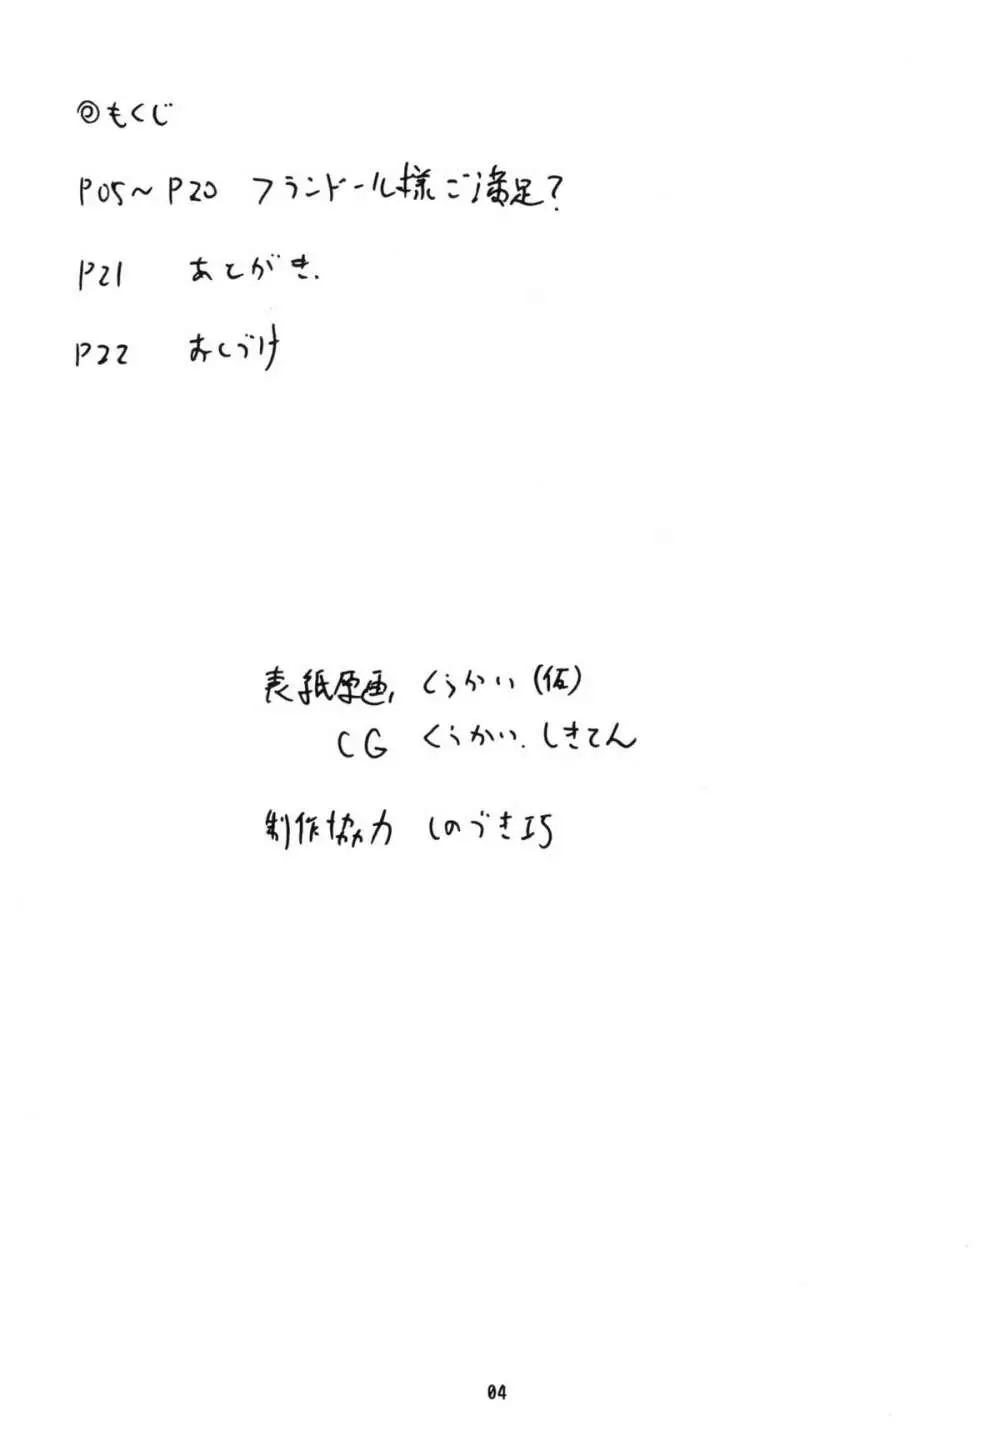 ◎もくじ
P05～P20 フランドール様ご満足?
P21 あとがき.
P22 おくづけ
表紙原画, くらかい(仮)
CG くらかい. しきてん
制作協力 しのづきエS
04